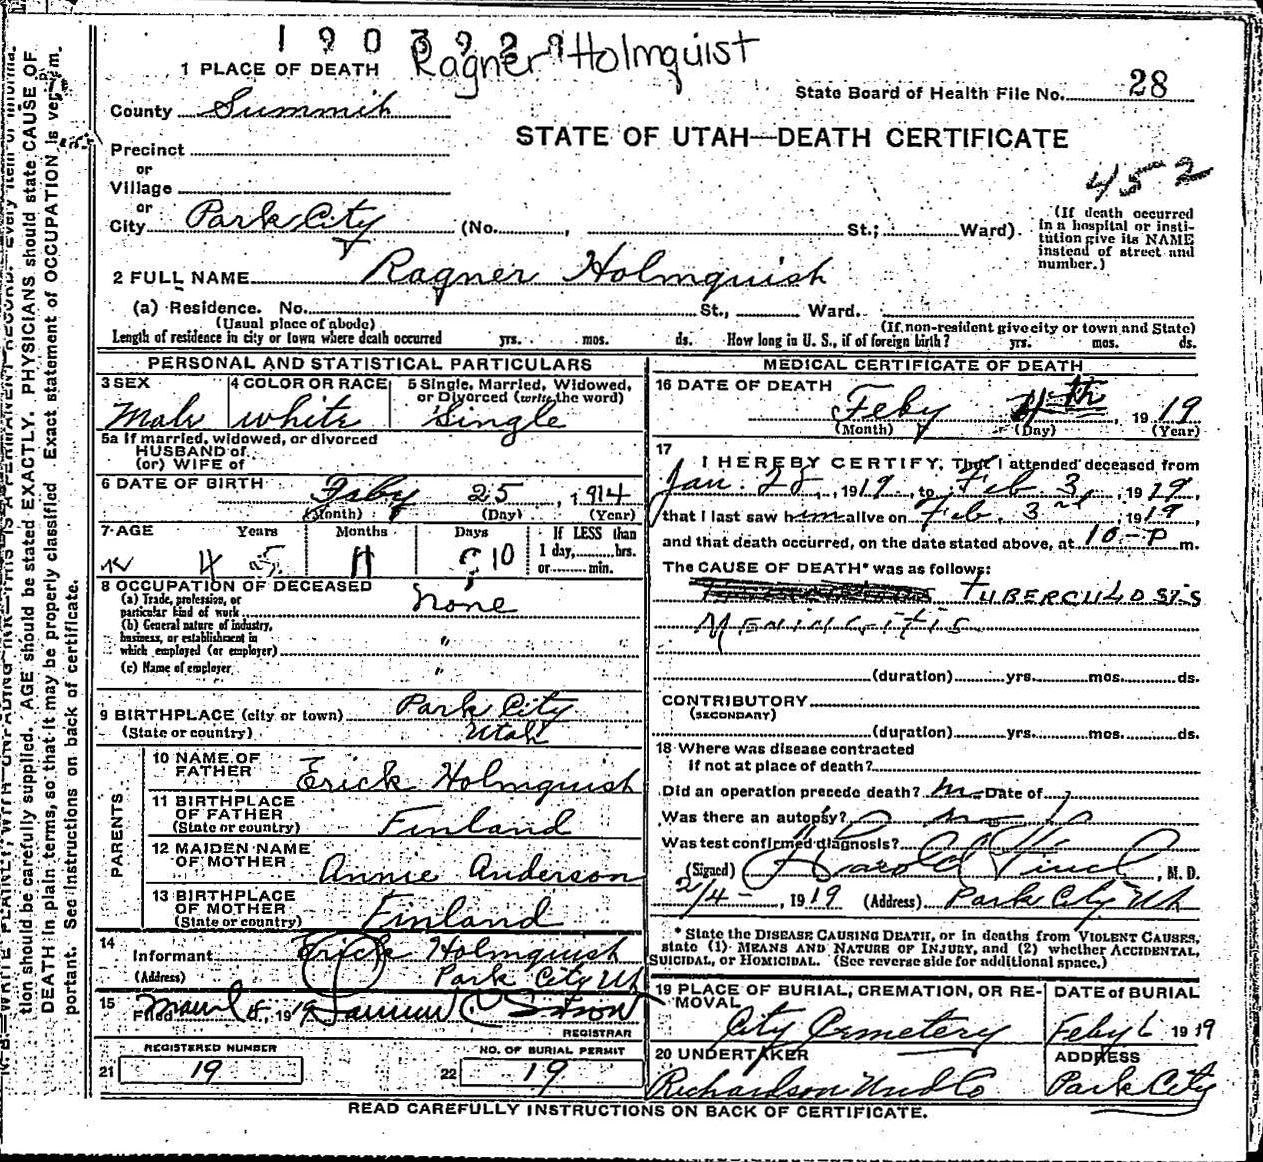 1903929
Ragner Holmquist
1 PLACE OF DEATH
State Board of Health File No. 28
County Summit
STATE OF UTAH—DEATH CERTIFICATE
Precinct
or
Village
452
or
City Park City (No. , St.; Ward)
(If death occurred in a hospital or institution give its NAME instead of street and number.)
2 FULL NAME Ragner Holmquist
(a) Residence. No. St., Ward.
(Usual place of abode) (If non-resident give city or town and State)
Length of residence in city or town where death occurred yrs. mos. ds. How long in U. S., if of foreign birth? yrs. mos. ds.
PERSONAL AND STATISTICAL PARTICULARS
3 SEX Male
4 COLOR OR RACE white
5 Single, Married, Widowed, or Divorced (write the word) Single
5a If married, widowed, or divorced
HUSBAND of
(or) WIFE of
6 DATE OF BIRTH Feby 25, 1914
(Month) (Day) (Year)
7 AGE Years Months Days If LESS than
4 11 10 1 day, hrs.
or min.
8 OCCUPATION OF DECEASED
(a) Trade, profession, or particular kind of work none
(b) General nature of industry, business, or establishment in which employed (or employer) "
(c) Name of employer "
9 BIRTHPLACE (city or town) Park City
(State or country) Utah
PARENTS
10 NAME OF FATHER Erick Holmquist
11 BIRTHPLACE OF FATHER (State or country) Finland
12 MAIDEN NAME OF MOTHER Annie Anderson
13 BIRTHPLACE OF MOTHER (State or country) Finland
14 Informant Erick Holmquist
(Address) Park City Ut
15 Filed 1919
REGISTRAR
REGISTERED NUMBER NO. OF BURIAL PERMIT
21 19 22 19
MEDICAL CERTIFICATE OF DEATH
16 DATE OF DEATH
Feby 4th, 1919
(Month) (Day) (Year)
17 I HEREBY CERTIFY, That I attended deceased from
Jan. 28, 1919, to Feb. 3, 1919,
that I last saw him alive on Feb. 3rd, 1919,
and that death occurred, on the date stated above, at 10-P m.
The CAUSE OF DEATH* was as follows:
TUBERCULOSIS
MENINGITIS
(duration) yrs. mos. ds.
CONTRIBUTORY
(SECONDARY)
(duration) yrs. mos. ds.
18 Where was disease contracted
if not at place of death?
Did an operation precede death? no Date of
Was there an autopsy? no
Was test confirmed diagnosis?
(Signed) Harold, M. D.
2/4-, 1919 (Address) Park City Ut
* State the DISEASE CAUSING DEATH, or in deaths from VIOLENT CAUSES,
state (1) MEANS AND NATURE OF INJURY, and (2) whether ACCIDENTAL,
SUICIDAL, or HOMICIDAL. (See reverse side for additional space.)
19 PLACE OF BURIAL, CREMATION, OR REMOVAL City Cemetery
DATE of BURIAL Feby 6 1919
20 UNDERTAKER Richardson Und Co
ADDRESS Park City
READ CAREFULLY INSTRUCTIONS ON BACK OF CERTIFICATE.
tion should be carefully supplied. AGE should be stated EXACTLY. PHYSICIANS should state CAUSE OF
DEATH in plain terms, so that it may be properly classified. Exact statement of OCCUPATION is very im-
portant. See instructions on back of certificate.